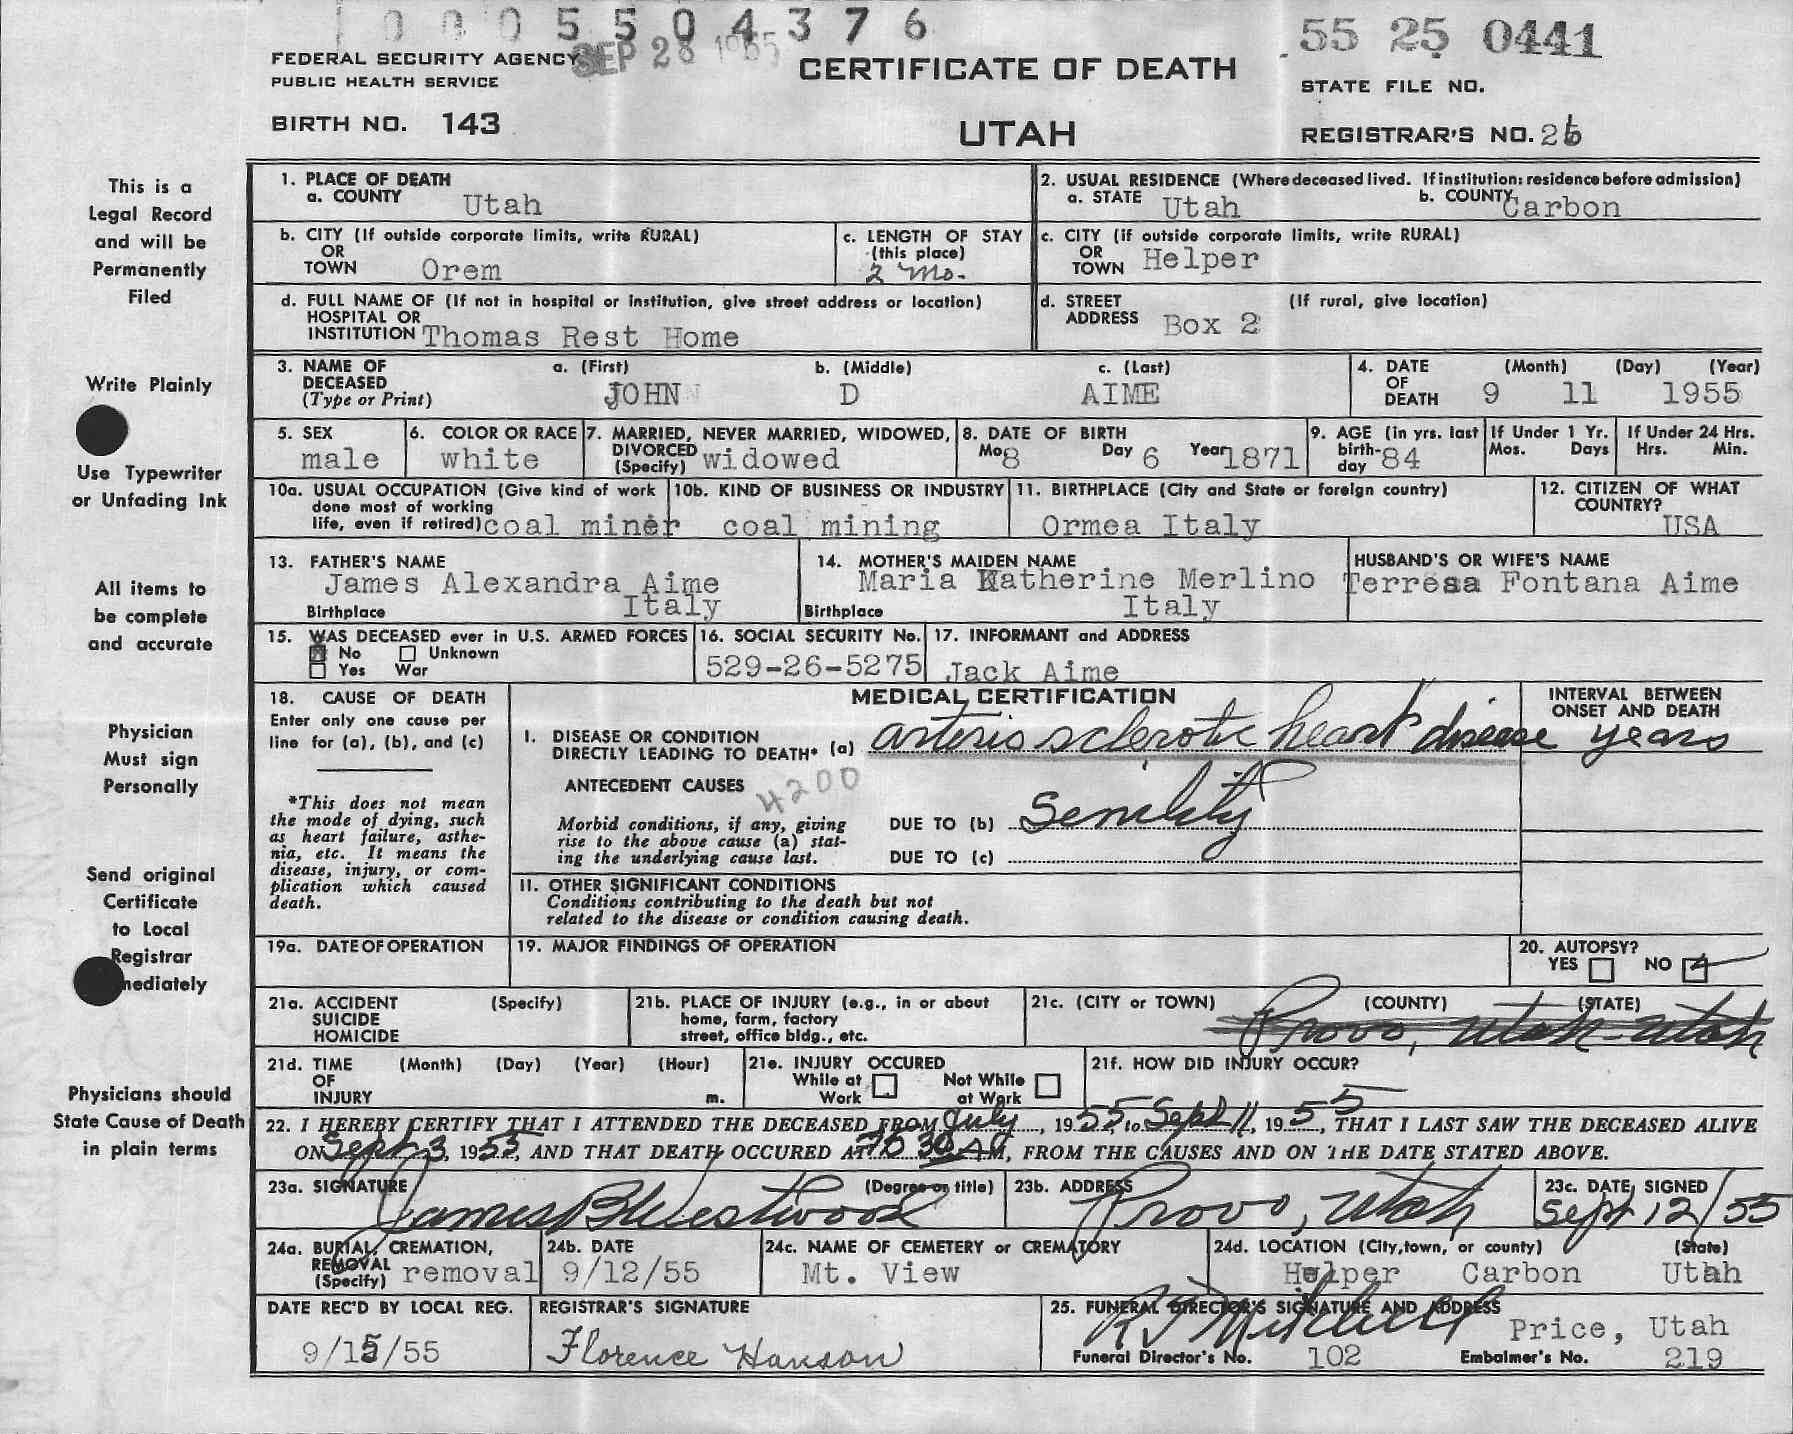 0005504376
SEP 28 1955
55 25 0441
FEDERAL SECURITY AGENCY
PUBLIC HEALTH SERVICE
CERTIFICATE OF DEATH
STATE FILE NO.
BIRTH NO. 143
UTAH
REGISTRAR'S NO. 26
This is a
Legal Record
and will be
Permanently
Filed
Write Plainly
Use Typewriter
or Unfading Ink
All items to
be complete
and accurate
Physician
Must sign
Personally
Send original
Certificate
to Local
Registrar
mediately
Physicians should
State Cause of Death
in plain terms
1. PLACE OF DEATH
a. COUNTY Utah
2. USUAL RESIDENCE (Where deceased lived. If institution: residence before admission)
a. STATE Utah b. COUNTY Carbon
b. CITY (If outside corporate limits, write RURAL)
OR
TOWN Orem
c. LENGTH OF STAY
(this place)
2 Mo.
c. CITY (if outside corporate limits, write RURAL)
OR
TOWN Helper
d. FULL NAME OF (If not in hospital or institution, give street address or location)
HOSPITAL OR
INSTITUTION Thomas Rest Home
d. STREET (If rural, give location)
ADDRESS Box 2
3. NAME OF a. (First) b. (Middle) c. (Last)
DECEASED
(Type or Print) JOHN D AIME
4. DATE (Month) (Day) (Year)
OF
DEATH 9 11 1955
5. SEX
male
6. COLOR OR RACE
white
7. MARRIED, NEVER MARRIED, WIDOWED,
DIVORCED
(Specify) widowed
8. DATE OF BIRTH
Mo 8 Day 6 Year 1871
9. AGE (in yrs. last
birth-
day 84
If Under 1 Yr.
Mos. Days
If Under 24 Hrs.
Hrs. Min.
10a. USUAL OCCUPATION (Give kind of work
done most of working
life, even if retired) coal miner
10b. KIND OF BUSINESS OR INDUSTRY
coal mining
11. BIRTHPLACE (City and State or foreign country)
Ormea Italy
12. CITIZEN OF WHAT
COUNTRY?
USA
13. FATHER'S NAME
James Alexandra Aime
Birthplace Italy
14. MOTHER'S MAIDEN NAME
Maria Katherine Merlino
Birthplace Italy
HUSBAND'S OR WIFE'S NAME
Terresa Fontana Aime
15. WAS DECEASED ever in U.S. ARMED FORCES
No Unknown
Yes War
16. SOCIAL SECURITY No.
529-26-5275
17. INFORMANT and ADDRESS
Jack Aime
18. CAUSE OF DEATH
Enter only one cause per
line for (a), (b), and (c)
*This does not mean
the mode of dying, such
as heart failure, asthe-
nia, etc. It means the
disease, injury, or com-
plication which caused
death.
MEDICAL CERTIFICATION
I. DISEASE OR CONDITION
DIRECTLY LEADING TO DEATH* (a) arterio sclerotic heart disease
INTERVAL BETWEEN
ONSET AND DEATH
years
ANTECEDENT CAUSES
4200
Morbid conditions, if any, giving
rise to the above cause (a) stat-
ing the underlying cause last.
DUE TO (b) Senility
DUE TO (c)
II. OTHER SIGNIFICANT CONDITIONS
Conditions contributing to the death but not
related to the disease or condition causing death.
19a. DATE OF OPERATION
19. MAJOR FINDINGS OF OPERATION
20. AUTOPSY?
YES NO
21a. ACCIDENT (Specify)
SUICIDE
HOMICIDE
21b. PLACE OF INJURY (e.g., in or about
home, farm, factory
street, office bldg., etc.
21c. (CITY or TOWN) (COUNTY) (STATE)
Provo, Utah - Utah
21d. TIME (Month) (Day) (Year) (Hour)
OF
INJURY m.
21e. INJURY OCCURED
While at Not While
Work at Work
21f. HOW DID INJURY OCCUR?
22. I HEREBY CERTIFY THAT I ATTENDED THE DECEASED FROM July, 1955, to Sept 11, 1955, THAT I LAST SAW THE DECEASED ALIVE
ON Sept 3, 1955, AND THAT DEATH OCCURED AT 30 AM, FROM THE CAUSES AND ON THE DATE STATED ABOVE.
23a. SIGNATURE (Degree or title)
James B Westwood
23b. ADDRESS
Provo, Utah
23c. DATE SIGNED
Sept 12/55
24a. BURIAL, CREMATION,
REMOVAL
(Specify) removal
24b. DATE
9/12/55
24c. NAME OF CEMETERY or CREMATORY
Mt. View
24d. LOCATION (City, town, or county) (State)
Helper Carbon Utah
DATE REC'D BY LOCAL REG.
9/15/55
REGISTRAR'S SIGNATURE
Florence Hanson
25. FUNERAL DIRECTOR'S SIGNATURE AND ADDRESS
R J Mitchell Price, Utah
Funeral Director's No. 102 Embalmer's No. 219